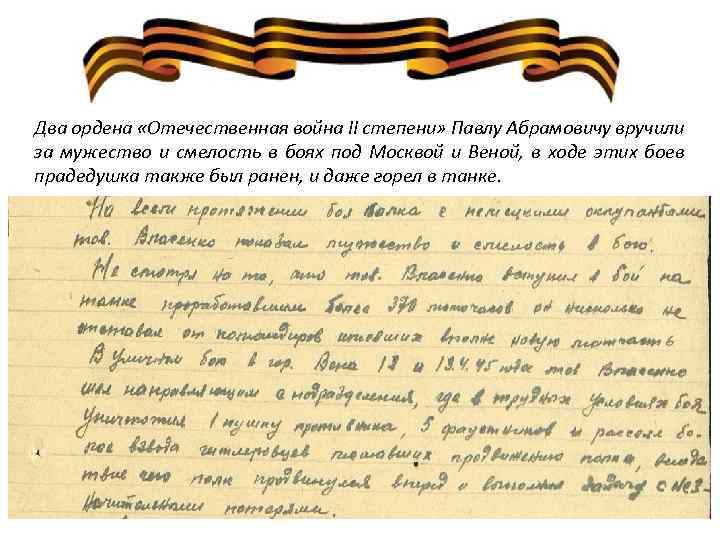 Два ордена «Отечественная война II степени» Павлу Абрамовичу вручили
за мужество и смелость в боях под Москвой и Веной, в ходе этих боев
прадедушка также был ранен, и даже горел в танке.
На всем протяжении боя полка с немецкими оккупантами
тов. Власенко показал мужество и смелость в бою.
Не смотря на то, что тов. Власенко вступил в бой на
танке проработавшем более 370 моточасов он нисколько не
отставал от командиров имевших вполне новую матчасть
В уличном бою в гор. Вена 12 и 13.4.45 года тов Власенко
шел направляющим с подразделения, где в трудных условиях боя
уничтожил 1 пушку противника, 5 фаустников и рассеял бо-
лее взвода гитлеровцев мешавших продвижению полка, вследс
твие чего полк продвинулся вперед и выполнил задачу с
начительными потерями.